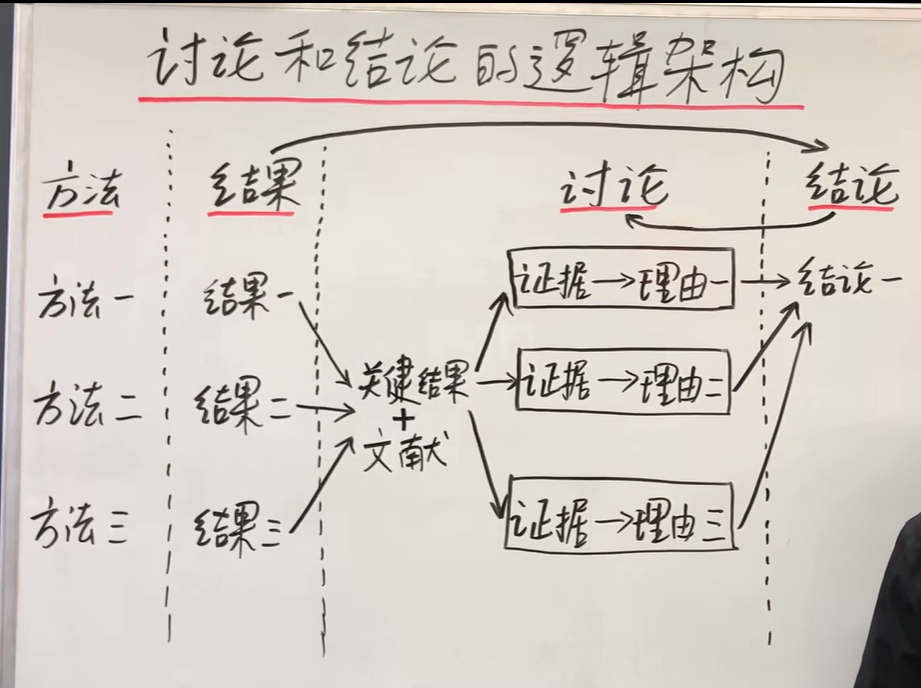 讨论和结论的逻辑架构
方法 结果 讨论 结论
方法一 结果一 证据→理由一 结论一
方法二 结果二 关键结果 证据→理由二
+
文献
方法三 结果三 证据→理由三